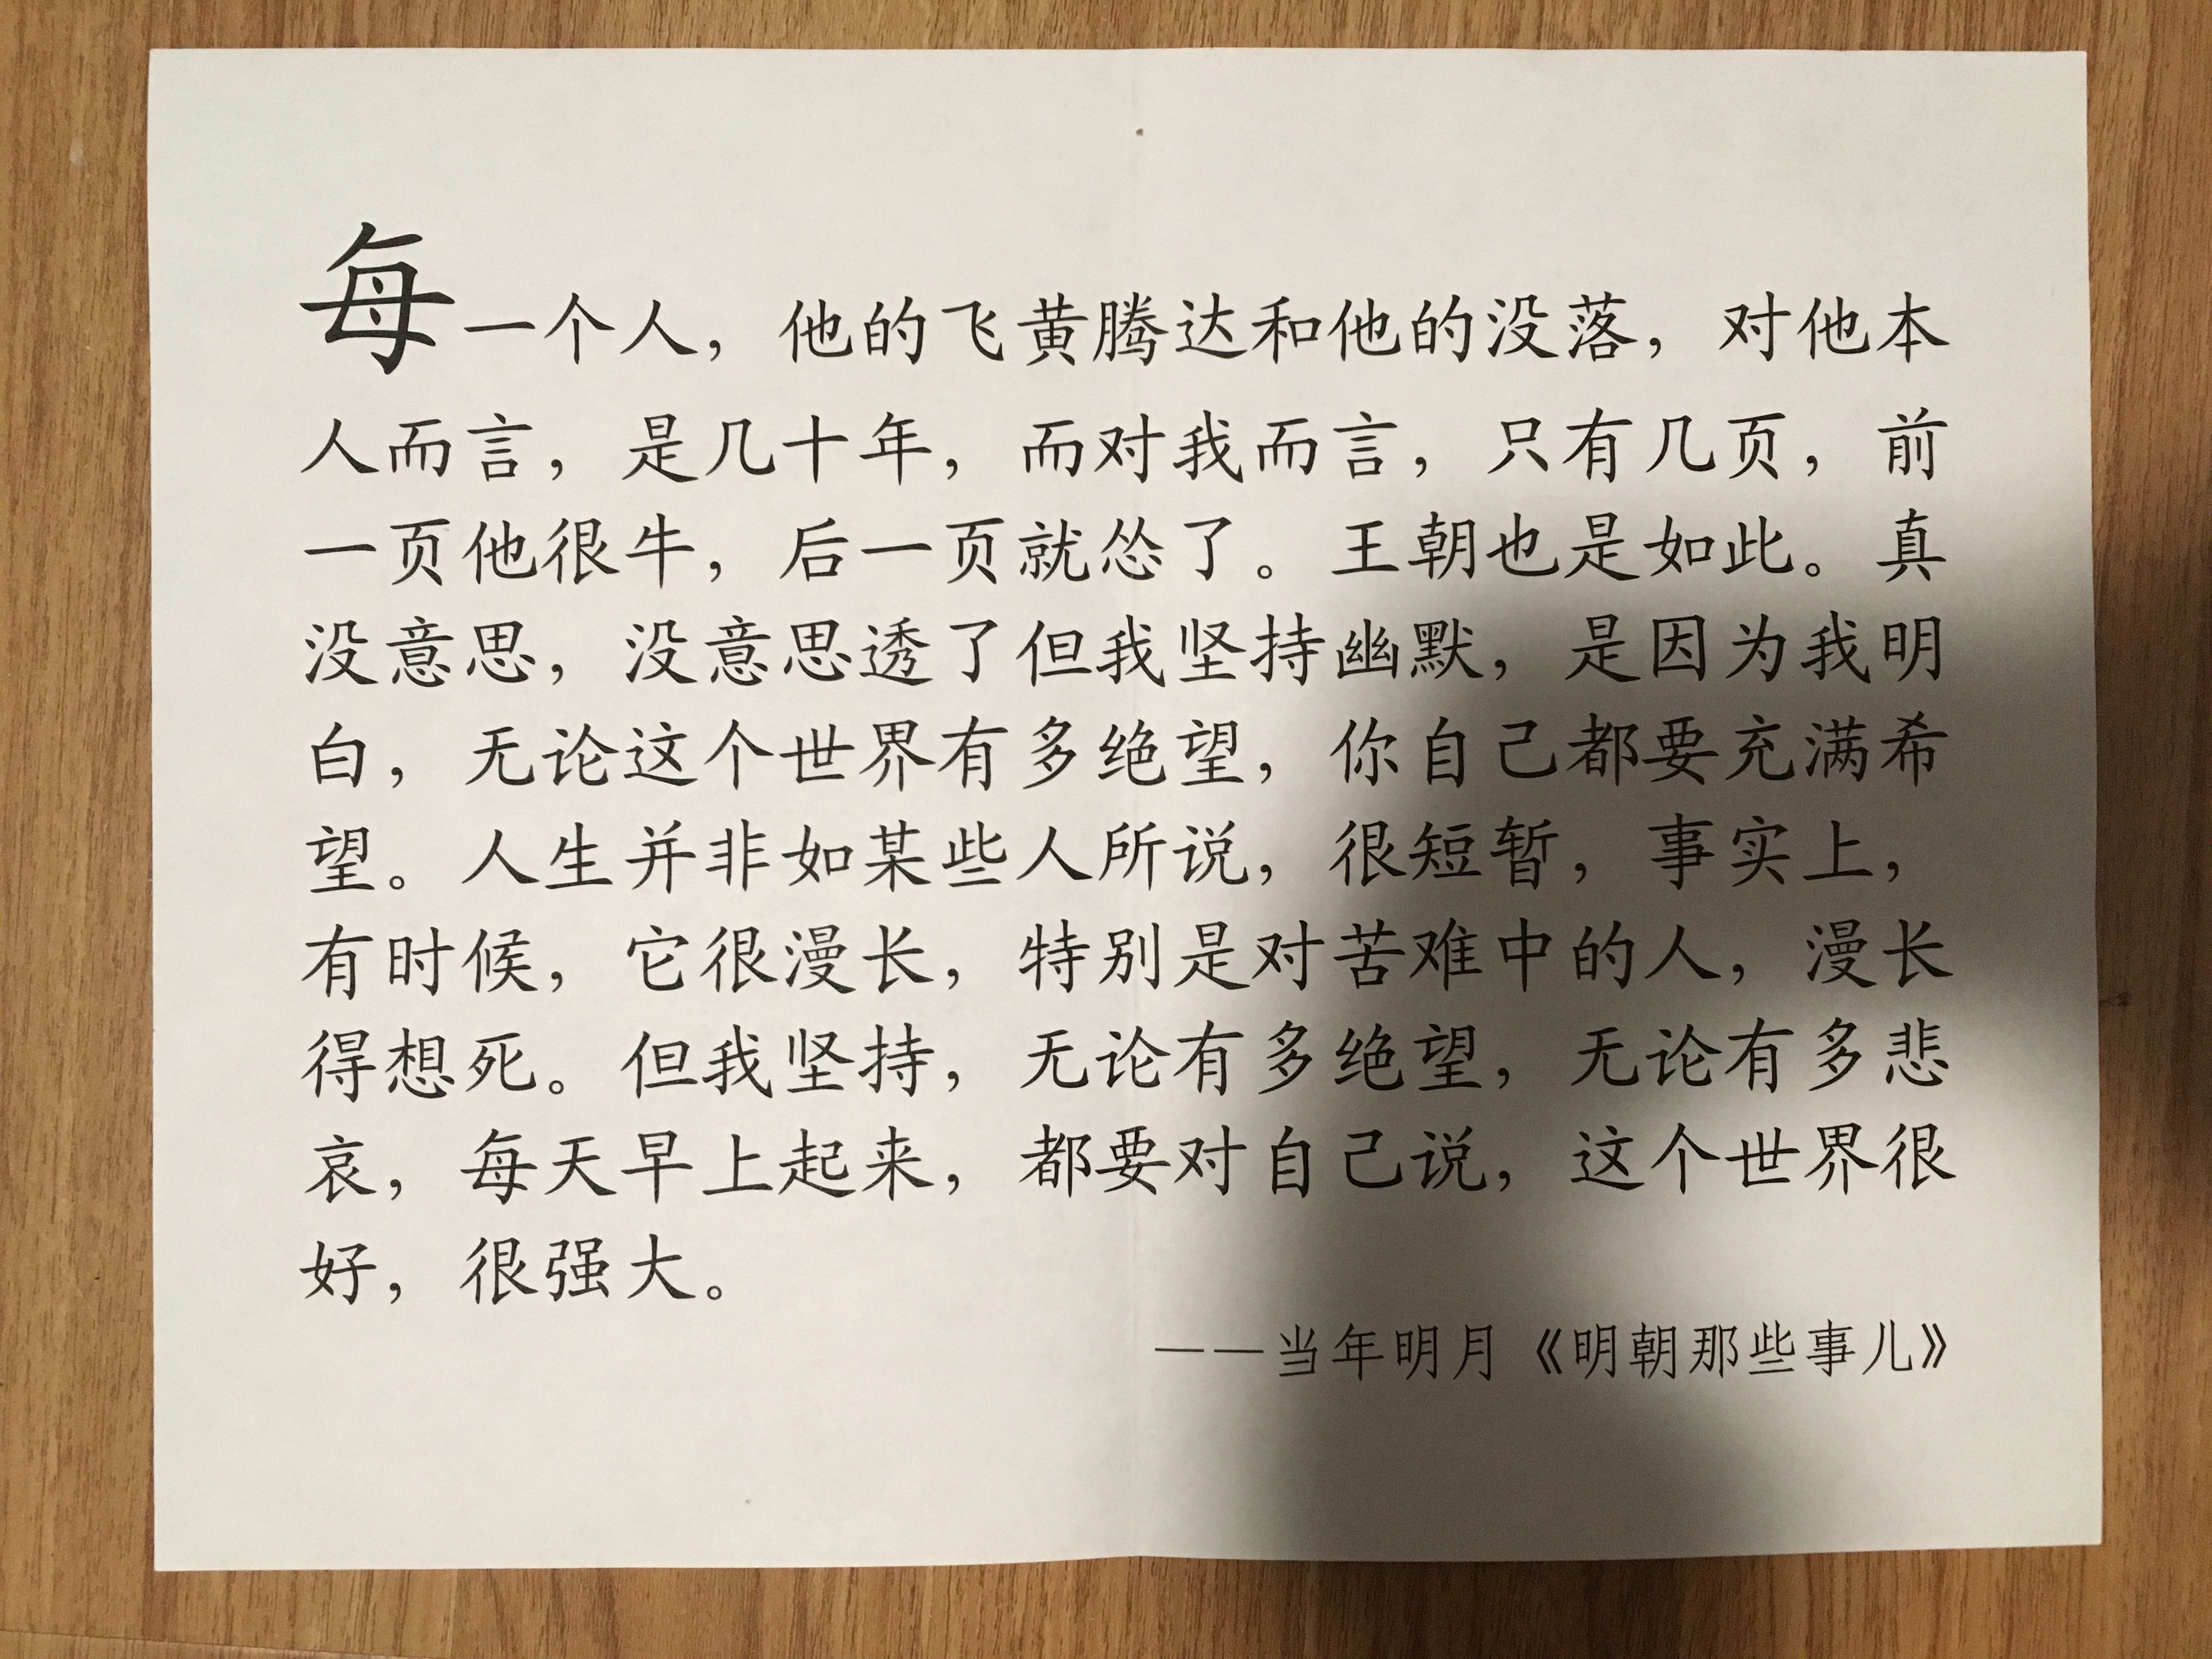 每一个人，他的飞黄腾达和他的没落，对他本
人而言，是几十年，而对我而言，只有几页，前
一页他很牛，后一页就怂了。王朝也是如此。真
没意思，没意思透了但我坚持幽默，是因为我明
白，无论这个世界有多绝望，你自己都要充满希
望。人生并非如某些人所说，很短暂，事实上，
有时候，它很漫长，特别是对苦难中的人，漫长
得想死。但我坚持，无论有多绝望，无论有多悲
哀，每天早上起来，都要对自己说，这个世界很
好，很强大。
——当年明月《明朝那些事儿》